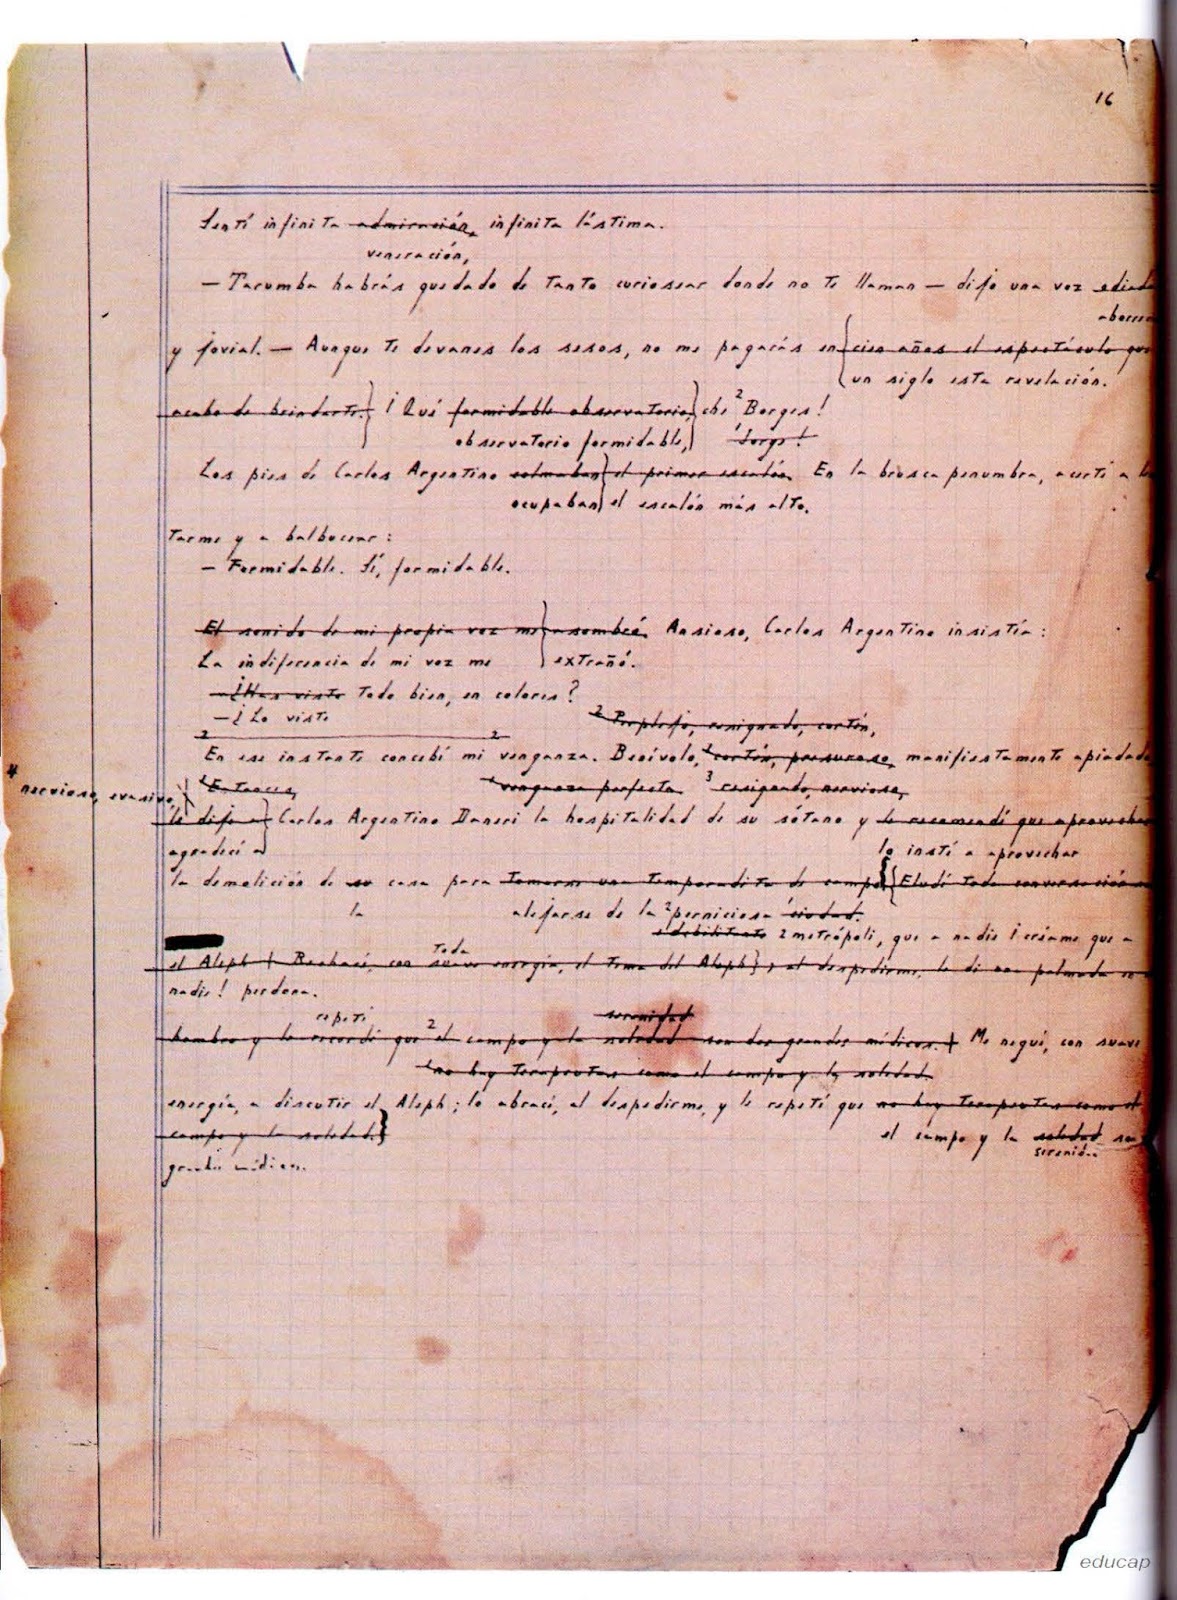 16
Sentí infinita admiración, infinita lástima.
veneración,
— Tarumba habrás quedado de tanto curiosear donde no te llaman — dijo una voz
y jovial. — Aunque te devanes los sesos, no me pagarás en cien años el espectáculo que
un siglo esta revelación.
acabo de brindarte. ¡Qué formidable observatorio, che 2 Borges!
observatorio formidable, 1 Jorge!
Los pies de Carlos Argentino colmaban el primer escalón. En la brusca penumbra, acerté a le
ocupaban el escalón más alto.
tarme y a balbucear:
— Formidable. Sí, formidable.
El sonido de mi propia voz me asombró. Ansioso, Carlos Argentino insistía:
La indiferencia de mi voz me extrañó.
— ¿Has visto todo bien, en colores?
— ¿Lo viste
2 Perplejo, resignado, cortés,
2 2
En ese instante concebí mi venganza. Benévolo, cortés, presuroso, manifiestamente apiadado
venganza perfecta 3 resignado, nervioso,
4
nervioso, evasivo,
le dije a Carlos Argentino Daneri la hospitalidad de su sótano y le recomendé que aprovechar
agradecí a lo insté a aprovechar
la demolición de su casa para tomarse una temporadita de campo. Eludí toda conversación
la alejarse de la 2 perniciosa 1 ciudad.
debilitante 2 metrópoli, que a nadie ¡créame que a
toda
el Aleph Rechacé, con suave energía, el tema del Aleph; al despedirme, le di una palmada en
nadie! perdona.
repetí serenidad
hombro y le recordé que 2 el campo y la soledad son dos grandes médicos. Me negué, con suave
1 no hay terapeutas como el campo y la soledad.
energía, a discutir el Aleph; lo abracé, al despedirme, y le repetí que no hay terapeutas como el
campo y la soledad. el campo y la soledad son
grandes médicos.
educap